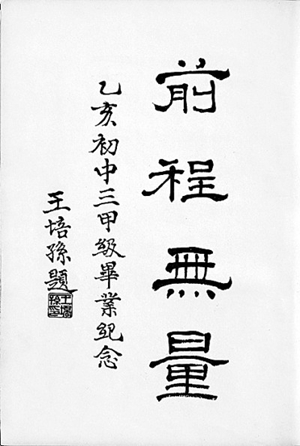 前程無量
乙亥初中三甲級畢業紀念
王培孫題